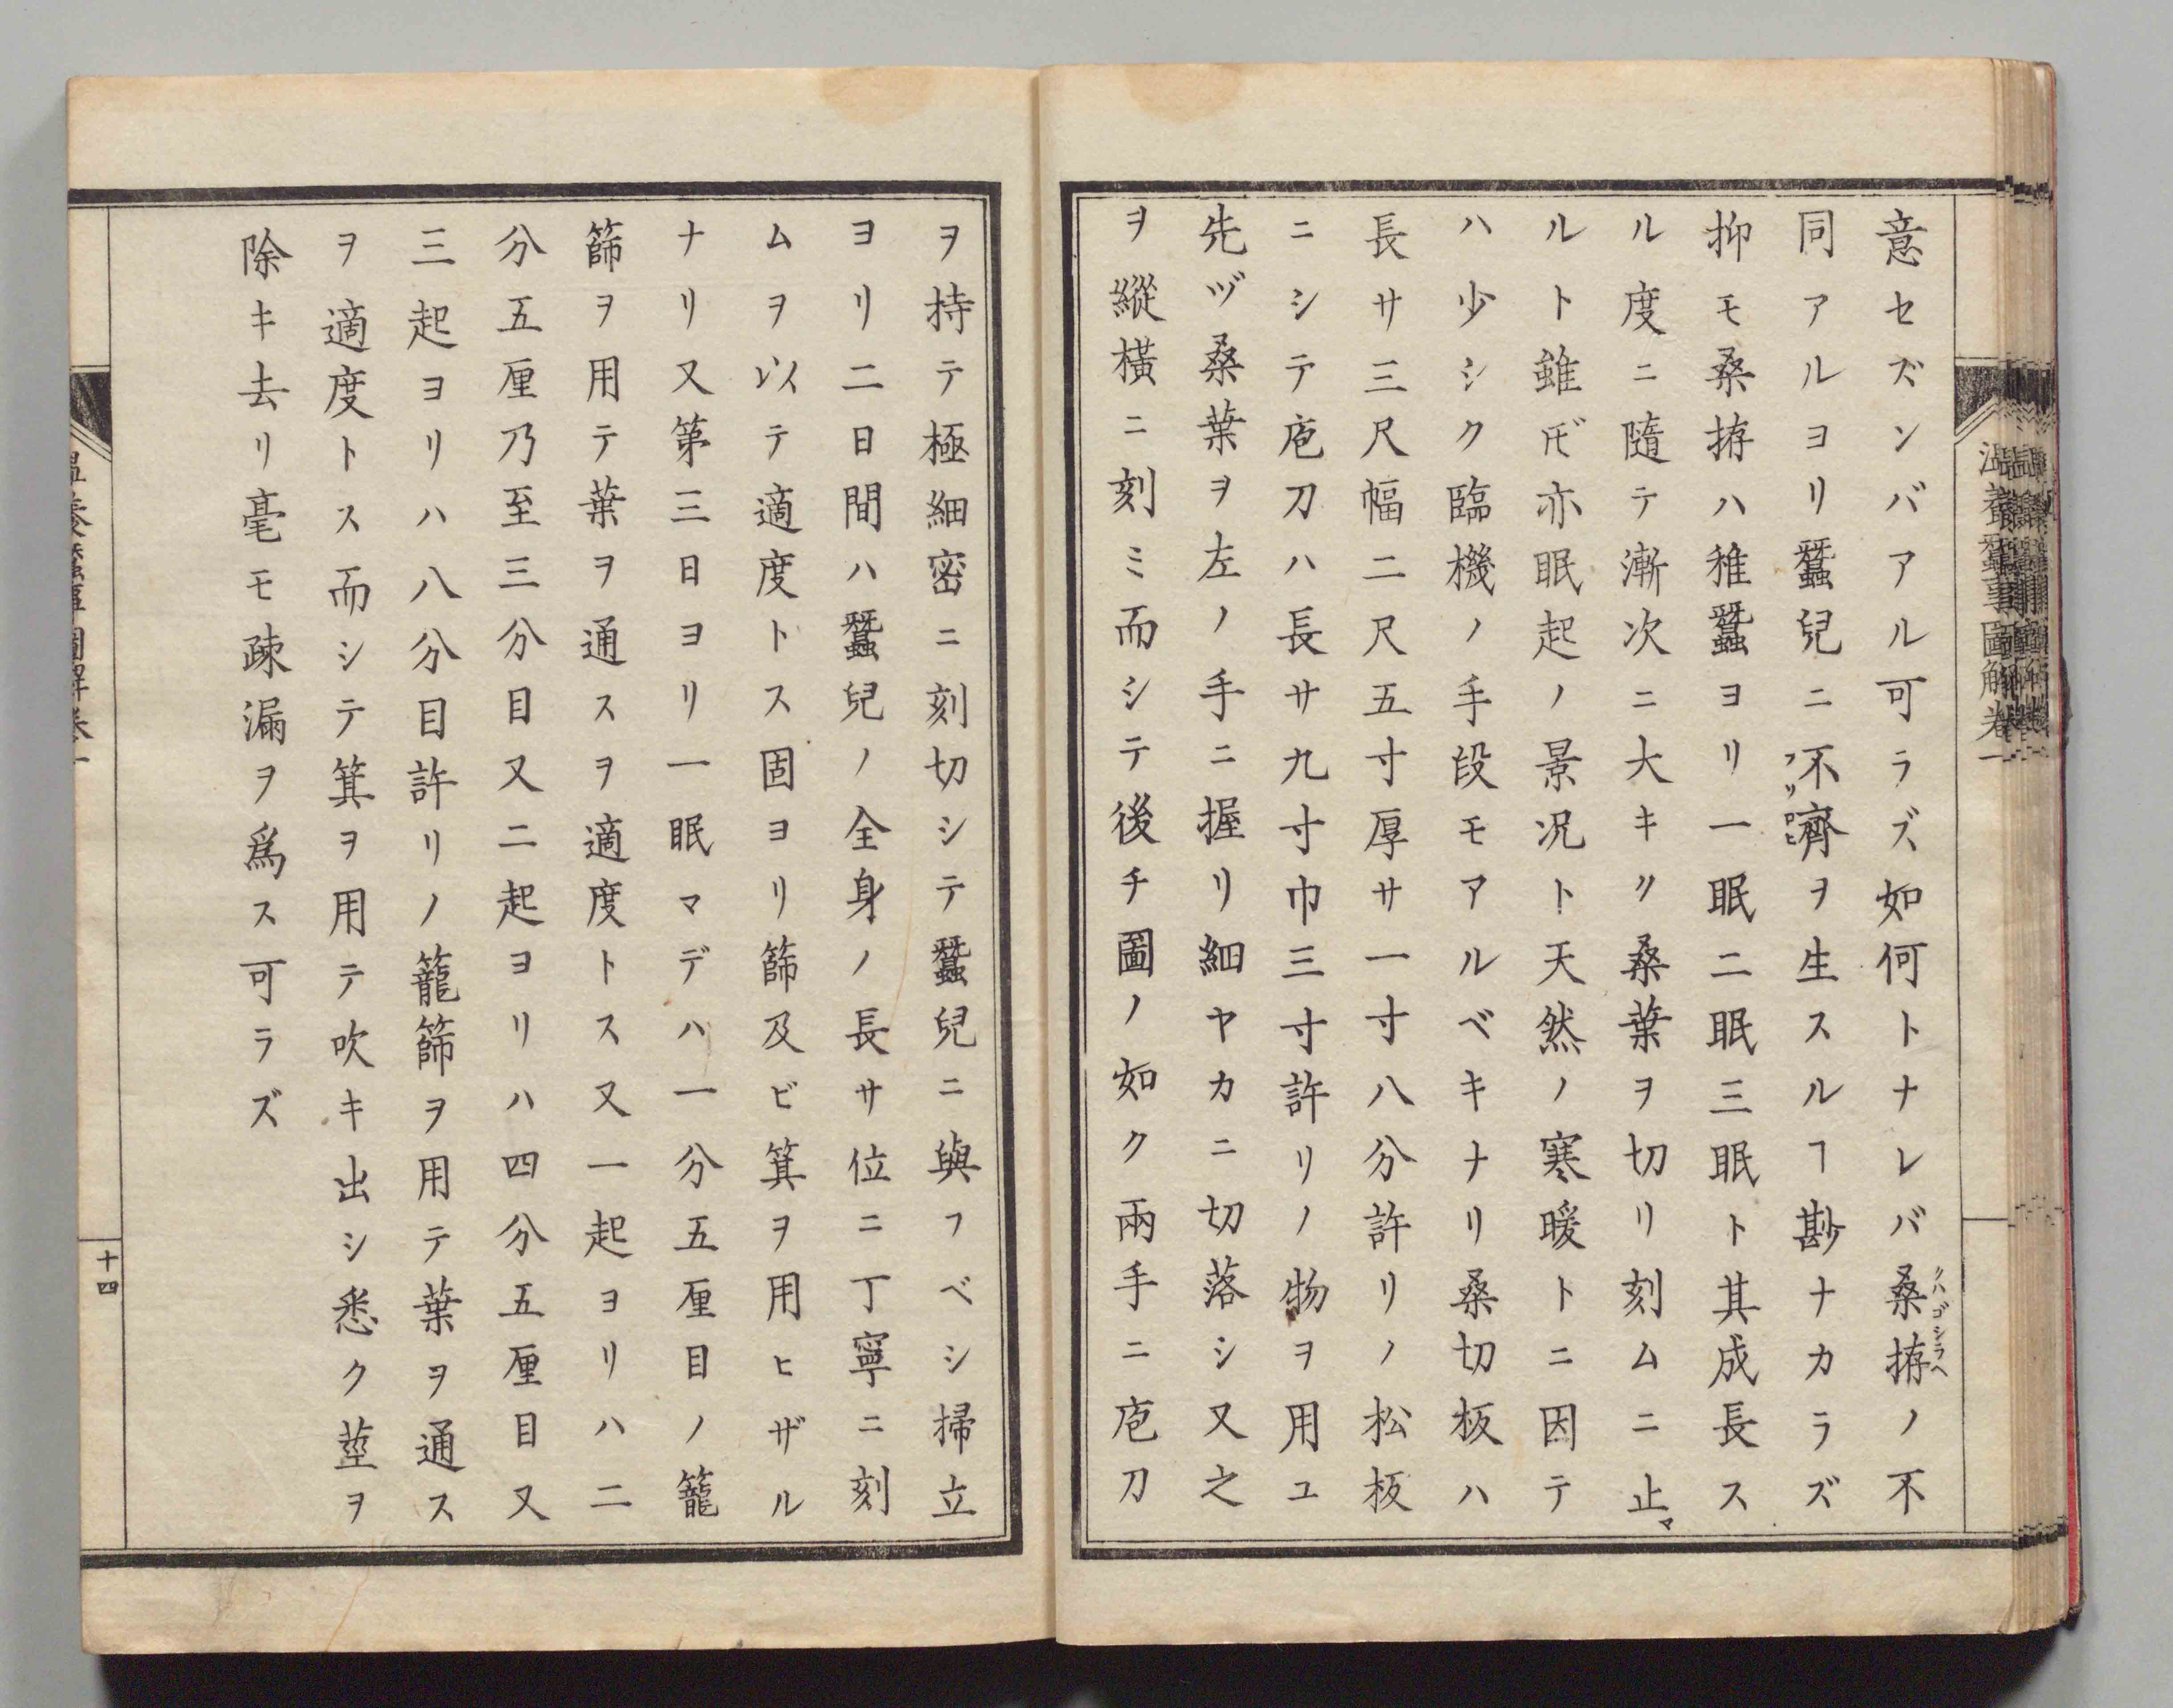 意セズンバアル可ラズ如何トナレバ桑拵ノ不
同アルヨリ蠶兒ニ不齊ヲ生スルヿ尠ナカラズ
抑モ桑拵ハ稚蠶ヨリ一眠二眠三眠ト其成長ス
ル度ニ隨テ漸次ニ大キク桑葉ヲ切リ刻ムニ止
ルト雖𪜈亦眠起ノ景况ト天然ノ寒暖トニ因テ
ハ少シク臨機ノ手段モアルベキナリ桑切板ハ
長サ三尺幅二尺五寸厚サ一寸八分許リノ松板
ニシテ庖刀ハ長サ九寸巾三寸許リノ物ヲ用ユ
先ヅ桑葉ヲ左ノ手ニ握リ細ヤカニ切落シ又之
ヲ縱橫ニ刻ミ而シテ後チ圖ノ如ク兩手ニ庖刀
ヲ持テ極細密ニ刻切シテ蠶兒ニ與フベシ掃立
ヨリ二日間ハ蠶兒ノ全身ノ長サ位ニ丁寧ニ刻
ムヲ以テ適度トス固ヨリ篩及ビ箕ヲ用ヒザル
ナリ又第三日ヨリ一眠マデハ一分五厘目ノ籠
篩ヲ用テ葉ヲ通スヲ適度トス又一起ヨリハ二
分五厘乃至三分目又二起ヨリハ四分五厘目又
三起ヨリハ八分目許リノ籠篩ヲ用テ葉ヲ通ス
ヲ適度トス而シテ箕ヲ用テ吹キ出シ悉ク莖ヲ
除キ去リ毫モ疎漏ヲ爲ス可ラズ
十四